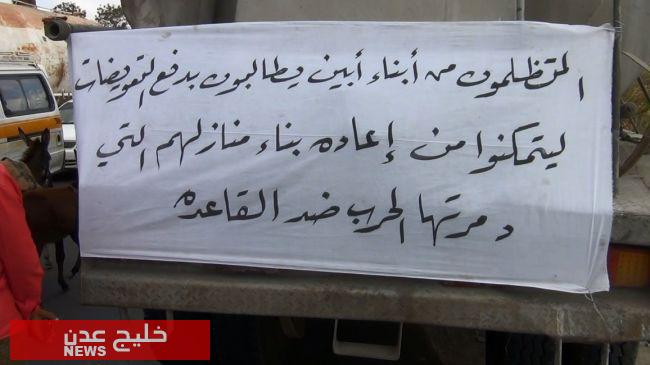 المتظلمون من أبناء أبين يطالبون بدفع التعويضات
ليتمكنوا من إعاده بناء منازلهم التي
دمرتها الحرب ضد القاعده
خليج عدن
NEWS